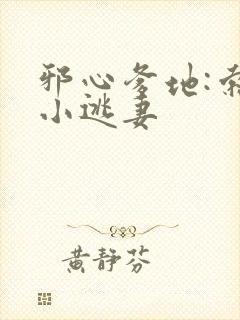 邪心爹地:
小逃妻
黄静芬